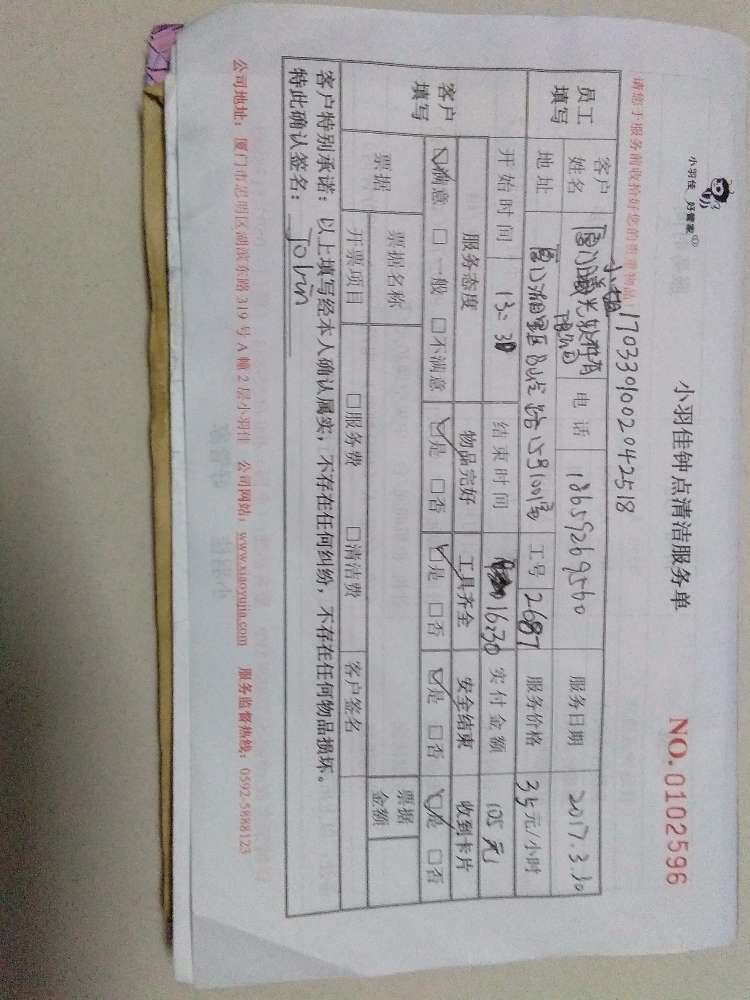 小羽佳 好管家
小羽佳钟点清洁服务单
NO.0102596
请您于服务前收拾好您的贵重物品!
17033010020042518
员工填写
客户姓名
电话 13659269560
服务日期 2017.3.30
地址
工号 2687
服务价格 35元/小时
客户填写
开始时间 13:30
结束时间 16:30
实付金额 105元
服务态度 物品完好 工具齐全 安全结束 收到卡片
☑满意 □一般 □不满意 ☑是 □否 ☑是 □否 ☑是 □否 ☑是 □否
票据 票据名称 票据金额
开票项目 □服务费 □清洁费 客户签名
客户特别承诺:以上填写经本人确认属实,不存在任何纠纷,不存在任何物品损坏。
特此确认签名:Jolvin
公司地址:厦门市思明区湖滨东路319号A幢2层小羽佳 公司网站:www.xiaoyujia.com 服务监督热线:0592-5888123